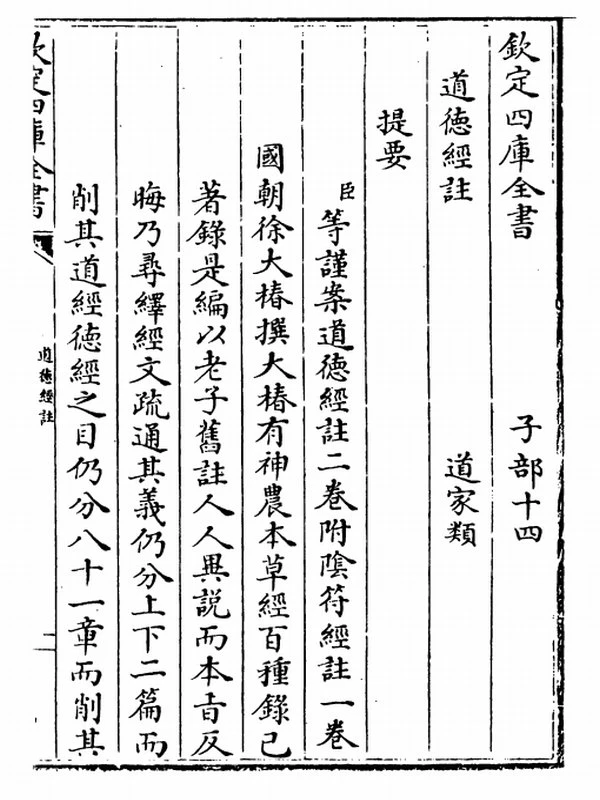 欽定四庫全書　子部十四
道德經註　道家類
提要
臣等謹案道德經註二卷附陰符經註一卷
國朝徐大椿撰大椿有神農本草經百種錄已
著錄是編以老子舊註人人異說而本㫖反
晦乃尋繹經文疏通其義仍分上下二篇而
削其道經德經之目仍分八十一章而削其
欽定四庫全書
道德經註
一